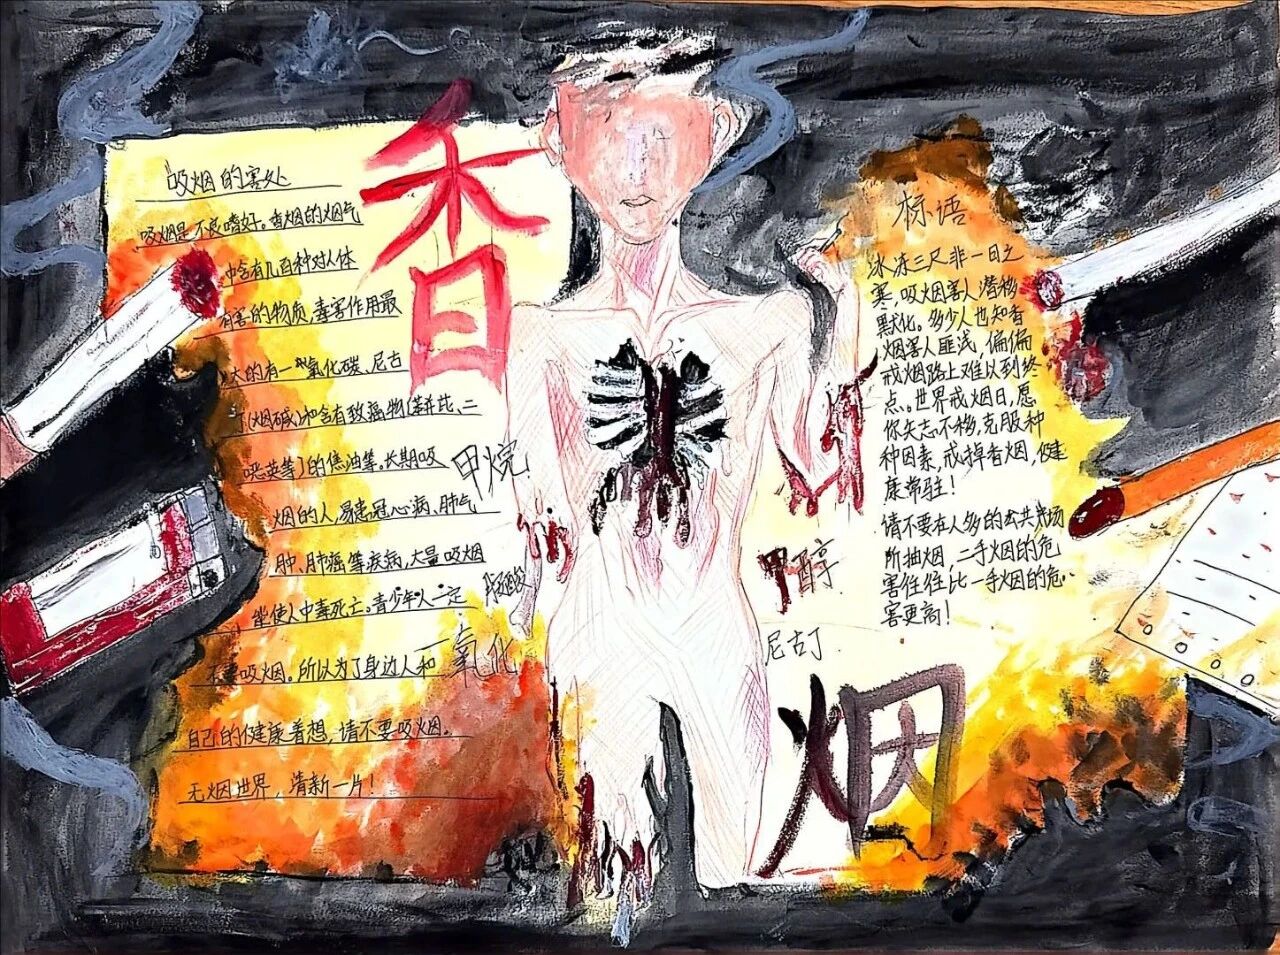 吸烟的害处
吸烟是不良嗜好。香烟的烟气
中含有几百种对人体
有害的物质,毒害作用最
大的有一氧化碳、尼古
丁(烟碱)和含有致癌物(苯并芘、二
噁英等)的焦油等。长期吸
烟的人,易患冠心病、肺气
肿、肺癌等疾病,大量吸烟
会使人中毒死亡。青少年人一定
不要吸烟。所以为了身边人和
自己的健康着想,请不要吸烟。
无烟世界,清新一片!
香
甲烷
一氧化
甲醇
尼古丁
烟
标语
冰冻三尺非一日之
寒,吸烟害人潜移
默化。多少人也知香
烟害人匪浅,偏偏
戒烟路上难以到终
点。世界戒烟日,愿
你矢志不移,克服种
种因素,戒掉香烟,健
康常驻!
请不要在人多的公共场
所抽烟,二手烟的危
害往往比一手烟的危
害更高!